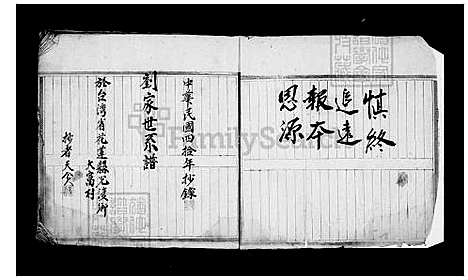 慎終
追遠
報本
思源
中華民國四拾年抄錄
劉家世系譜
於台湾省花蓮縣光復鄉
大富村
抄者天分
FamilySearch